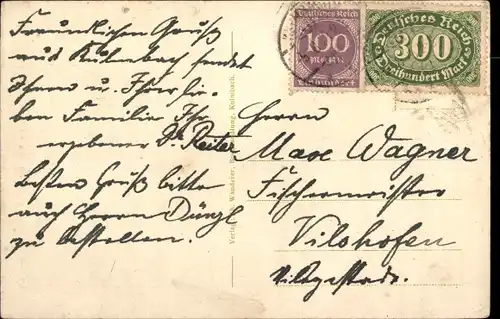 Freundlichen Gruß
aus Kulmbach sendet
Ihnen u. Ihrer lie-
ben Familie Ihr
ergebener Dr. Reiter
Besten Gruß bitte
auch Herrn Dünzl
zu bestellen.
Verlag Wanderer, Kulmbach.
Deutsches Reich
100
MARK
Einhundert
Deutsches Reich
300
Dreihundert Mark
Herrn
Max Wagner
Fischermeister
Vilshofen